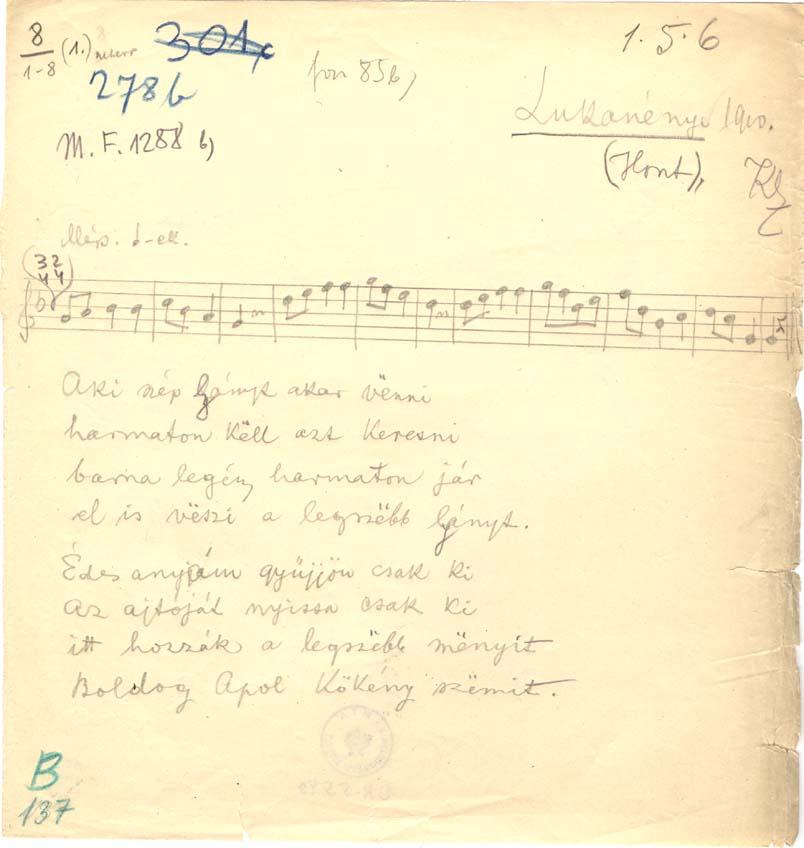 8
1-8
(1.)
301,c
278b
M. F. 1288 b)
fon 85b)
1. 5. 6
Lukanénye 1910.
(Hont),
3 2
4 4
Aki szép lyányt akar vënni
harmaton këll azt keresni
barna legény harmaton jár
el is vëszi a legszëbb lyányt.
Édes anyjám gyüjjön csak ki
az ajtóját nyissa csak ki
itt hozzák a legszëbb mënyit
Boldog Apol kökény szëmit.
B
137